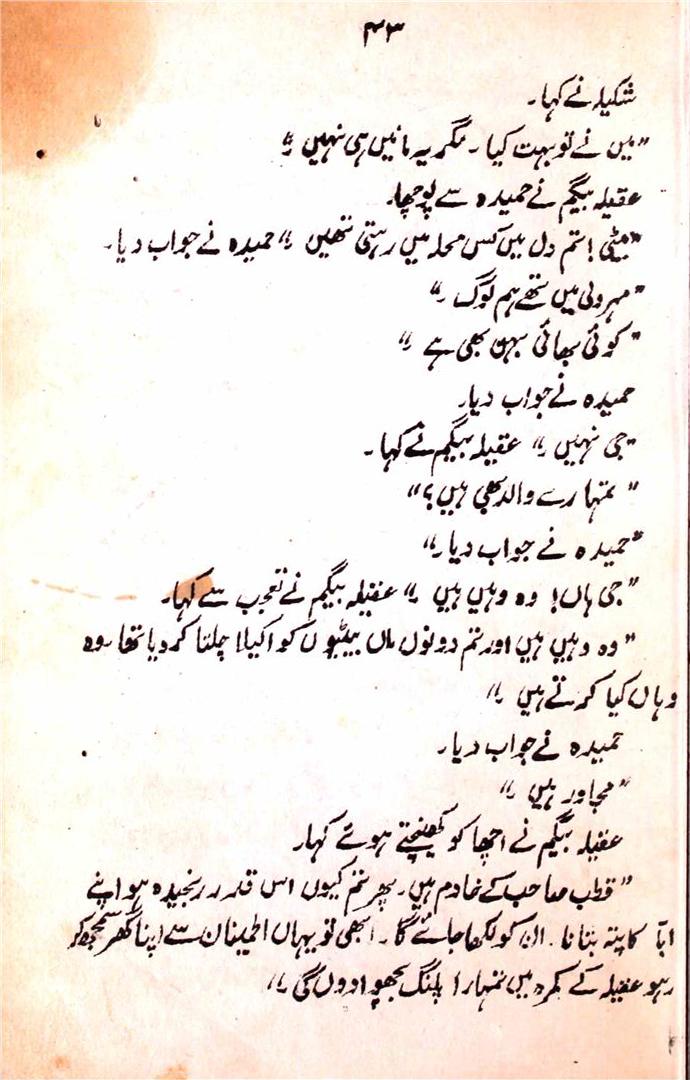 ۴۳
شکیلہ نے کہا۔
”میں نے تو بہت کیا۔ مگر یہ مانیں ہی نہیں۔“
عقیلہ بیگم نے حمیدہ سے پوچھا۔
”بیٹی! تم دلی میں کس محلہ میں رہتی تھیں۔“ حمیدہ نے جواب دیا۔
”مہرولی میں تھے ہم لوگ۔“
”کوئی بھائی بہن بھی ہے۔“
حمیدہ نے جواب دیا۔
”جی نہیں۔“ عقیلہ بیگم نے کہا۔
”تمہارے والد بھی ہیں؟“
”حمیدہ نے جواب دیا۔“
”جی ہاں! وہ وہیں ہیں۔“ عقیلہ بیگم نے تعجب سے کہا۔
”وہ وہیں ہیں اور تم دونوں ماں بیٹیوں کو اکیلا چلتا کر دیا تھا۔ وہ
وہاں کیا کرتے ہیں۔“
حمیدہ نے جواب دیا۔
”مجاور ہیں۔“
عقیلہ بیگم نے اچھا کو کھینچتے ہوئے کہا۔
”قطب صاحب کے خادم ہیں۔ پھر تم کیوں اس قدر رنجیدہ ہو اپنے
ابّا کا پتہ بتانا۔ ان کو لکھا جائے گا۔ ابھی تو یہاں اطمینان سے اپنا گھر سمجھ کر
رہو عقیلہ کے کمرہ میں تمہارا پلنگ بچھوا دوں گی۔“